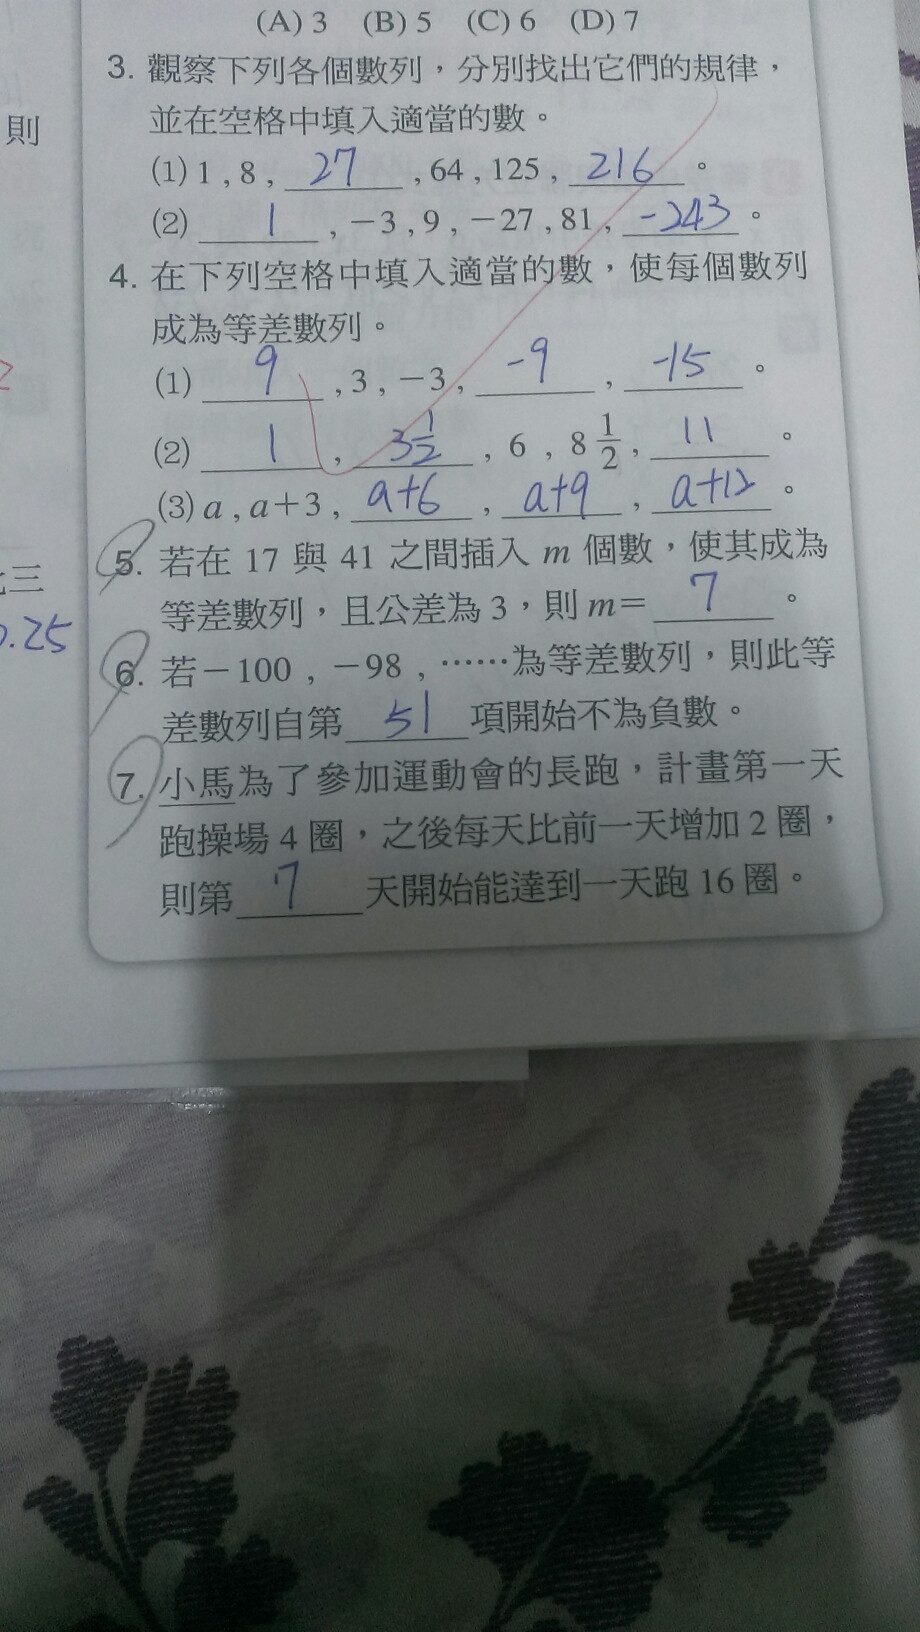 (A) 3 (B) 5 (C) 6 (D) 7
3. 觀察下列各個數列，分別找出它們的規律，
並在空格中填入適當的數。
(1) 1 , 8 , 27 , 64 , 125 , 216 。
(2) 1 , −3 , 9 , −27 , 81 , -243 。
4. 在下列空格中填入適當的數，使每個數列
成為等差數列。
(1) 9 , 3 , −3 , -9 , -15 。
(2) 1 , 3 1/2 , 6 , 8 1/2 , 11 。
(3) a , a+3 , a+6 , a+9 , a+12 。
5. 若在 17 與 41 之間插入 m 個數，使其成為
等差數列，且公差為 3，則 m= 7 。
6. 若−100 , −98 , ……為等差數列，則此等
差數列自第 51 項開始不為負數。
7. 小馬為了參加運動會的長跑，計畫第一天
跑操場 4 圈，之後每天比前一天增加 2 圈，
則第 7 天開始能達到一天跑 16 圈。
則
三
.25